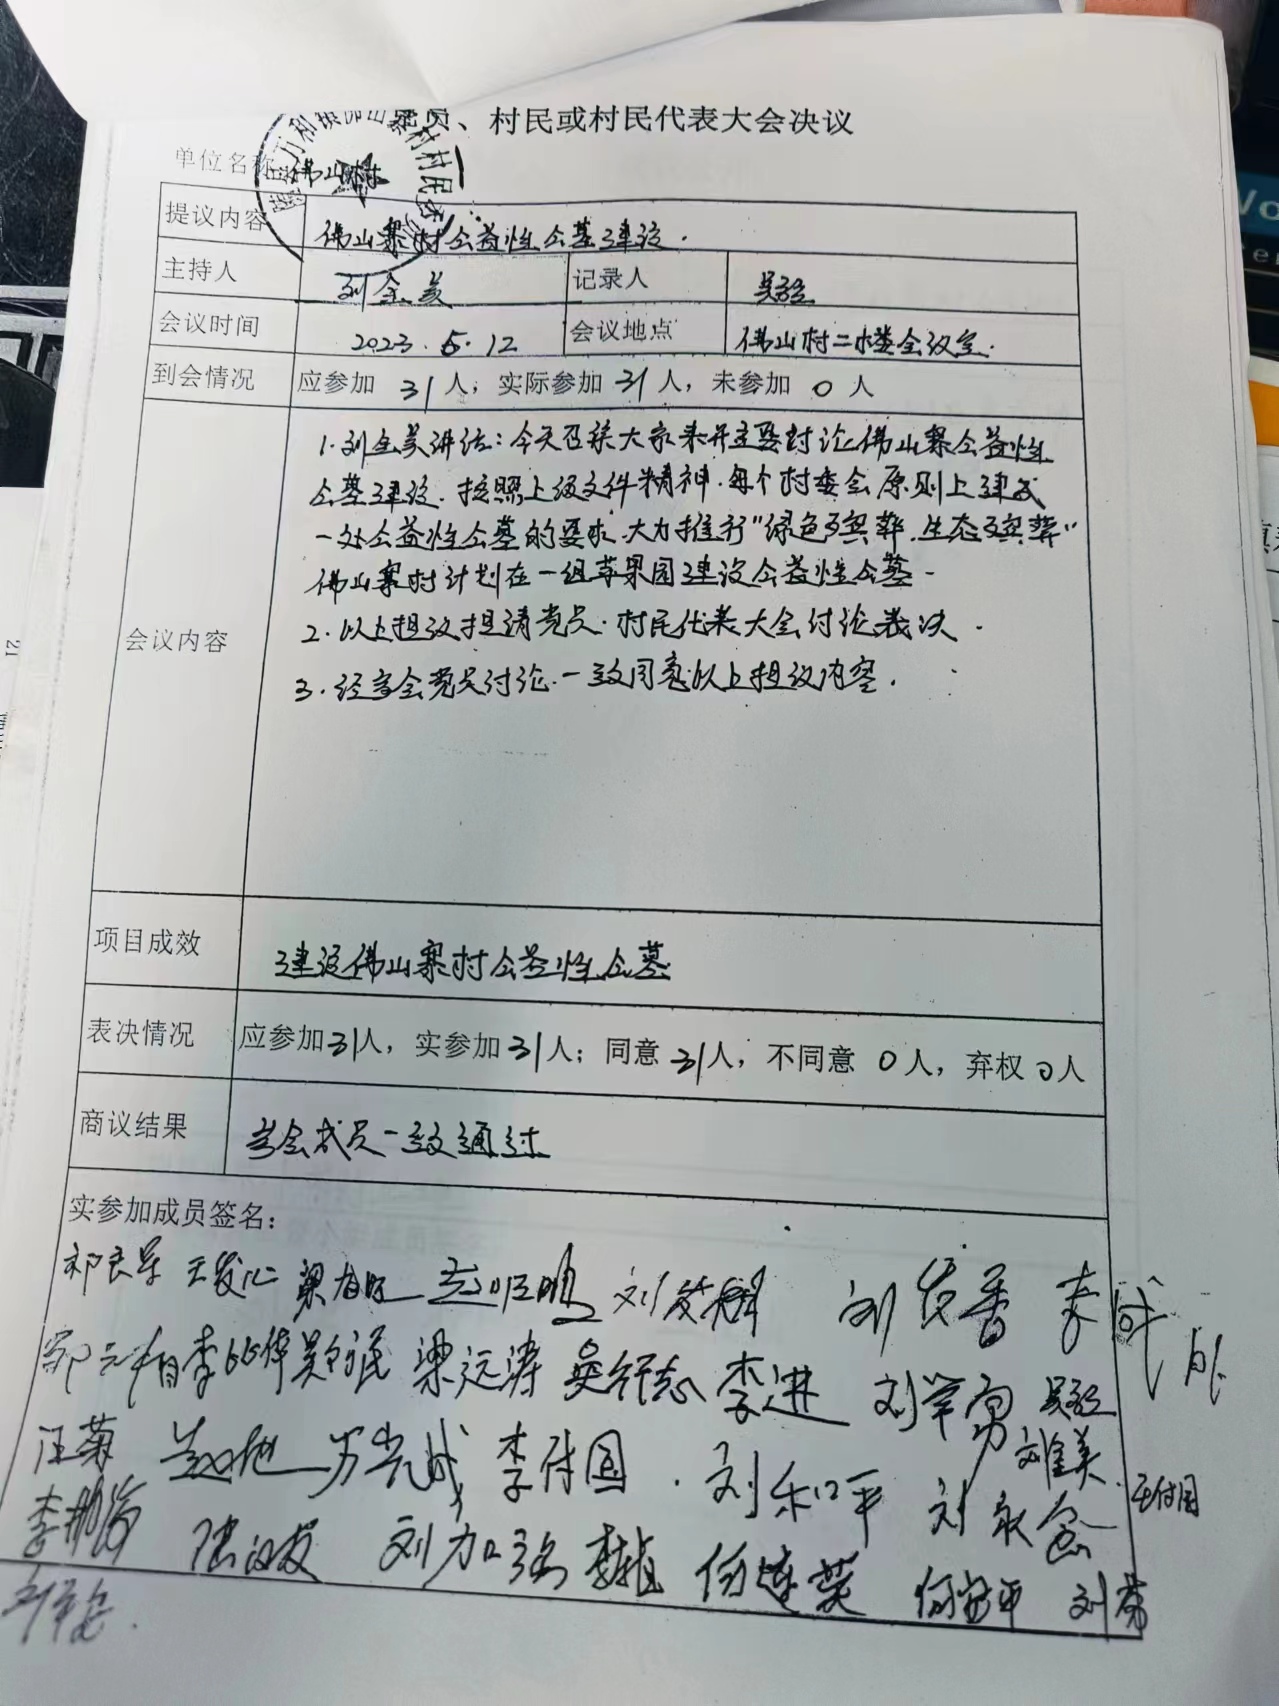 党员、村民或村民代表大会决议
单位名称 佛山村
提议内容 佛山寨村公益性公墓建设.
主持人 刘全美 记录人
会议时间 2023.5.12 会议地点 佛山村二楼会议室.
到会情况 应参加 31人，实际参加 31人，未参加 0人
会议内容
1.刘全美讲话：今天召集大家来开主要讨论佛山寨公益性
公墓建设.按照上级文件精神.每个村委会原则上建成
一处公益性公墓的要求.大力推行"绿色殡葬.生态殡葬"
佛山寨村计划在一组苹果园建设公益性公墓.
2.以上提议提请党员.村民代表大会讨论表决.
3.经与会党员讨论.一致同意以上提议内容.
项目成效 建设佛山寨村公益性公墓
表决情况 应参加31人，实参加31人；同意31人，不同意 0人，弃权0人
商议结果 与会成员一致通过
实参加成员签名：
刘发辉 刘 李
梁远涛 李进 刘
汪菊 李付国 刘和平 刘永 王付国
刘加 何连英 刘
21